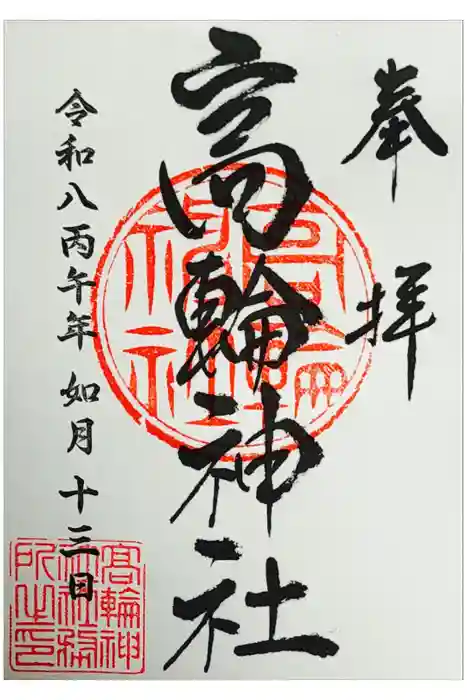 奉拝
高輪神社
令和八丙午年 如月 十三日
高輪神社
髙輪神
社務所之印